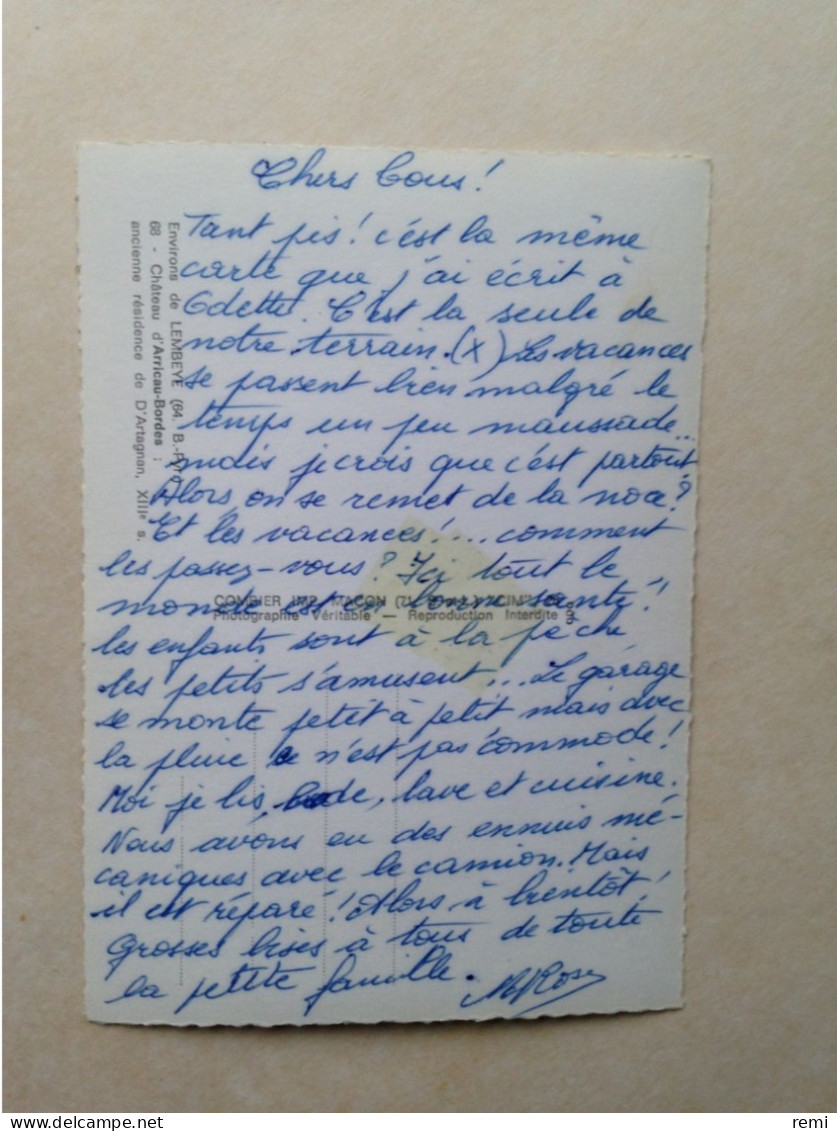 Chers Tous !
Tant pis ! c'est la même
carte que j'ai écrit à
Odette. C'est la seule de
notre terrain. (X) Les vacances
se passent bien malgré le
temps un peu maussade...
mais je crois que c'est partout.
Alors on se remet de la noce ?
Et les vacances !... comment
les passez-vous ? Ici tout le
monde est en bonne santé !
les enfants sont à la pêche
les petits s'amusent... Le garage
se monte petit à petit mais avec
la pluie ce n'est pas commode !
Moi je lis, lave et cuisine.
Nous avons eu des ennuis mé-
caniques avec le camion. Mais
il est réparé ! Alors à bientôt !
Grosses bises à tous de toute
la petite famille.
Environs de LEMBEYE (64. B.-Pyr.)
68 - Château d'Arricau-Bordes :
ancienne résidence de D'Artagnan, XIIIe s.
COMBIER IMP. MACON (71 "CIM"
Photographie Véritable — Reproduction Interdite
remi